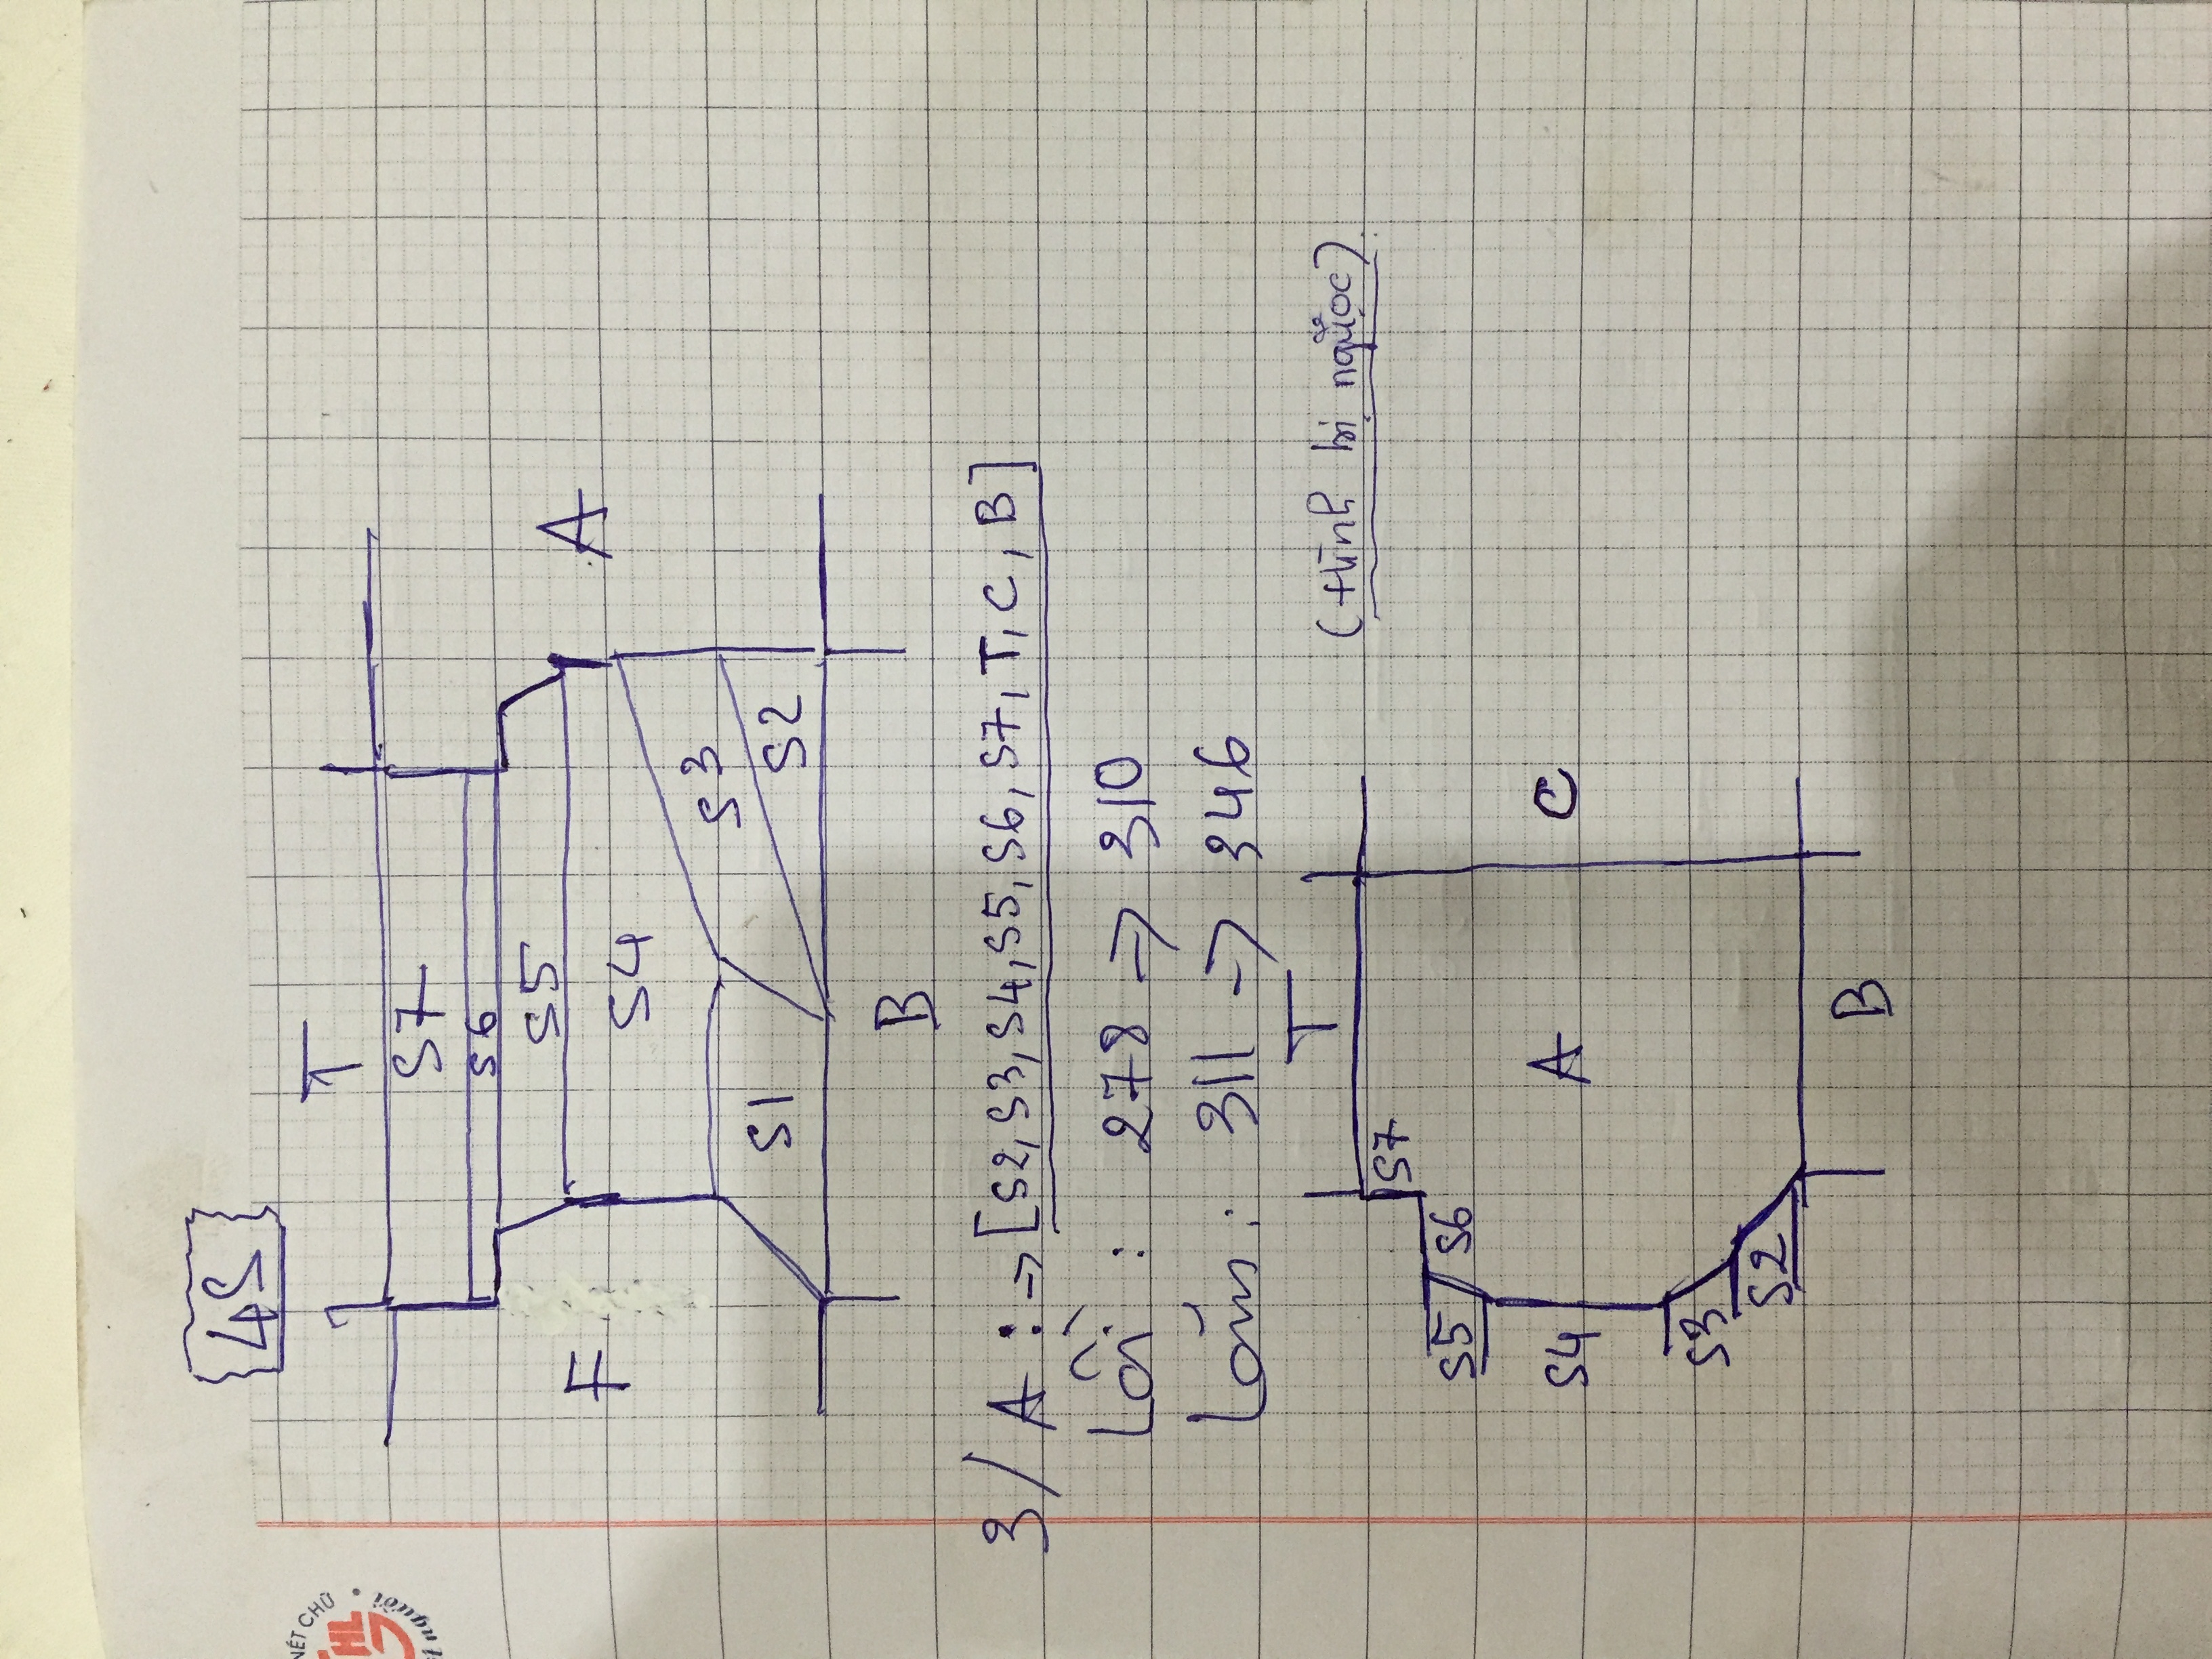 NÉT CHỮ
HL
t người.
4S
T
S7
S6
S5
F
A
S4
S3
S1
S2
B
3/ A : → [S2, S3, S4, S5, S6, S7, T, C, B]
Lồi : 278 → 310
Lõm : 311 → 346
T
(Hình bị ngược)
S7
S5 S6
S4
A
C
S3
S2
B